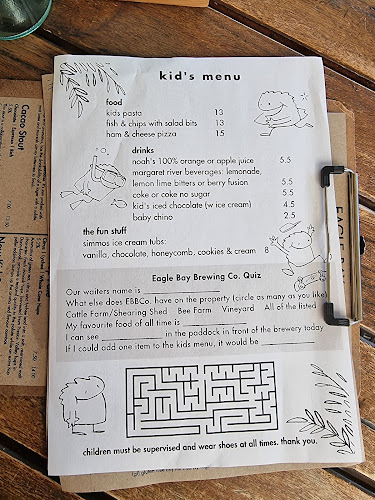 kid's menu
food
kids pasta 13
fish & chips with salad bits 13
ham & cheese pizza 15
drinks
noah's 100% orange or apple juice 5.5
margaret river beverages: lemonade,
lemon lime bitters or berry fusion 5.5
coke or coke no sugar 5.5
kid's iced chocolate (w ice cream) 4.5
baby chino 2.5
the fun stuff
simmos ice cream tubs:
vanilla, chocolate, honeycomb, cookies & cream 8
Eagle Bay Brewing Co. Quiz
Our waiters name is
What else does EBBCo. have on the property (circle as many as you like)
Cattle Farm/Shearing Shed Bee Farm Vineyard All of the listed
My favourite food of all time is
I can see in the paddock in front of the brewery today
If I could add one item to the kids menu, it would be
children must be supervised and wear shoes at all times. thank you.
Cacao Stout